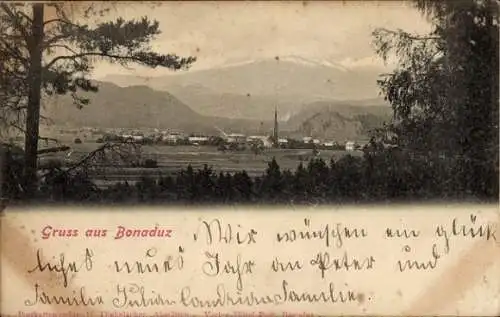 Gruss aus Bonaduz
Wir wünschen ein glück
liches neues Jahr an Peter und
Familie Julian Candrian Familie.